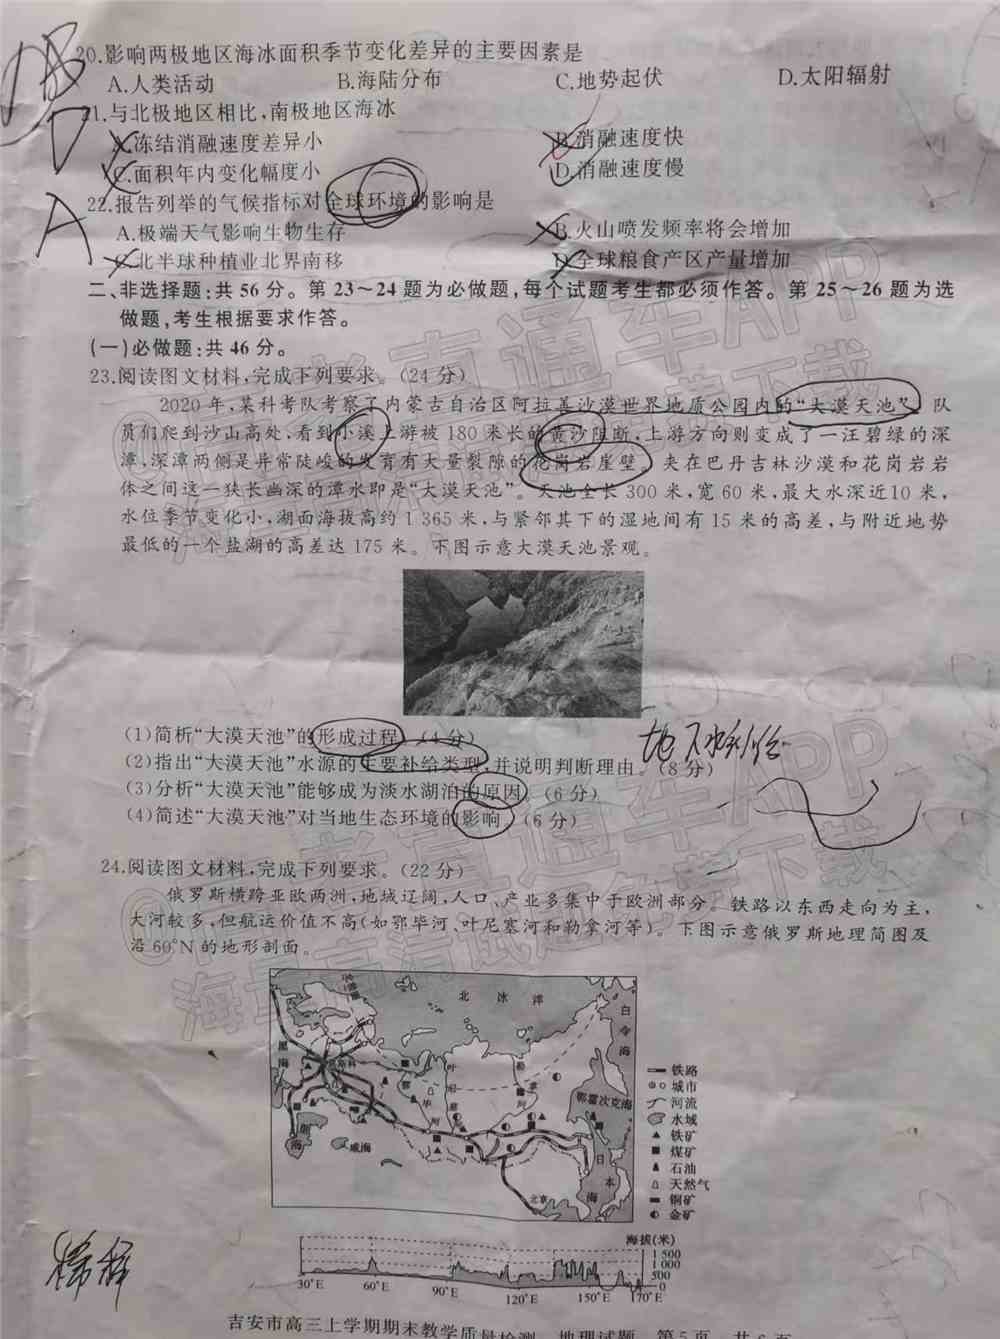 20.影响两极地区海冰面积季节变化差异的主要因素是
A.人类活动 B.海陆分布 C.地势起伏 D.太阳辐射
21.与北极地区相比,南极地区海冰
A.冻结消融速度差异小 B.消融速度快
C.面积年内变化幅度小 D.消融速度慢
22.报告列举的气候指标对全球环境的影响是
A.极端天气影响生物生存 B.火山喷发频率将会增加
C.北半球种植业北界南移 D.全球粮食产区产量增加
二、非选择题:共56分。第23~24题为必做题,每个试题考生都必须作答。第25~26题为选
做题,考生根据要求作答。
(一)必做题:共46分。
23.阅读图文材料,完成下列要求。(24分)
2020年,某科考队考察了内蒙古自治区阿拉善沙漠世界地质公园内的“大漠天池”。队
员们爬到沙山高处,看到小溪上游被180米长的黄沙阻断,上游方向则变成了一汪碧绿的深
潭,深潭两侧是异常陡峻的发育有大量裂隙的花岗岩崖壁。夹在巴丹吉林沙漠和花岗岩岩
体之间这一狭长幽深的潭水即是“大漠天池”。天池全长300米,宽60米,最大水深近10米,
水位季节变化小,湖面海拔高约1 365米,与紧邻其下的湿地间有15米的高差,与附近地势
最低的一个盐湖的高差达175米。下图示意大漠天池景观。
(1)简析“大漠天池”的形成过程。(4分)
(2)指出“大漠天池”水源的主要补给类型,并说明判断理由。(8分)
(3)分析“大漠天池”能够成为淡水湖泊的原因。(6分)
(4)简述“大漠天池”对当地生态环境的影响。(6分)
24.阅读图文材料,完成下列要求。(22分)
俄罗斯横跨亚欧两洲,地域辽阔,人口、产业多集中于欧洲部分。铁路以东西走向为主,
大河较多,但航运价值不高(如鄂毕河、叶尼塞河和勒拿河等)。下图示意俄罗斯地理简图及
沿60°N的地形剖面。
北 冰 洋
白令海
黑海
莫斯科
里海
咸海
鄂毕河
叶尼塞河
勒拿河
鄂霍次克海
日本海
北京
铁路
城市
河流
水域
铁矿
煤矿
石油
天然气
铜矿
金矿
海拔(米)
1 500
1 000
500
0
30°E 60°E 90°E 120°E 150°E 170°E
吉安市高三上学期期末教学质量检测 地理试题 第5页 共6页